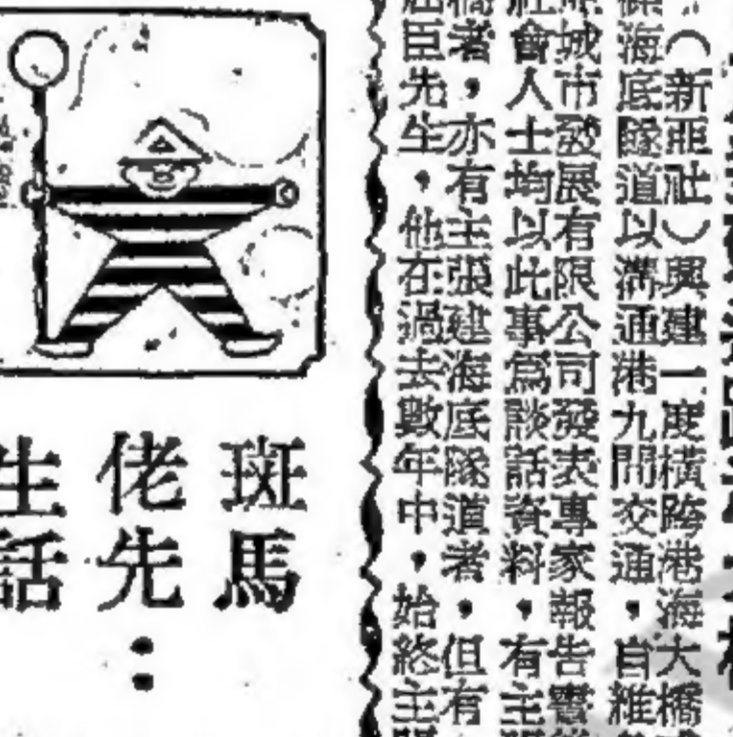 （新亞社）興建一度橫跨港海大橋
條海底隧道以溝通港九間交通，自維
城市發展有限公司發表專家報告書
社會人士均以此事爲談話資料，有主
橋者，亦有主張建海底隧道者，但有
臣先生，他在過去數年中，始終主
斑馬
佬先：
生話